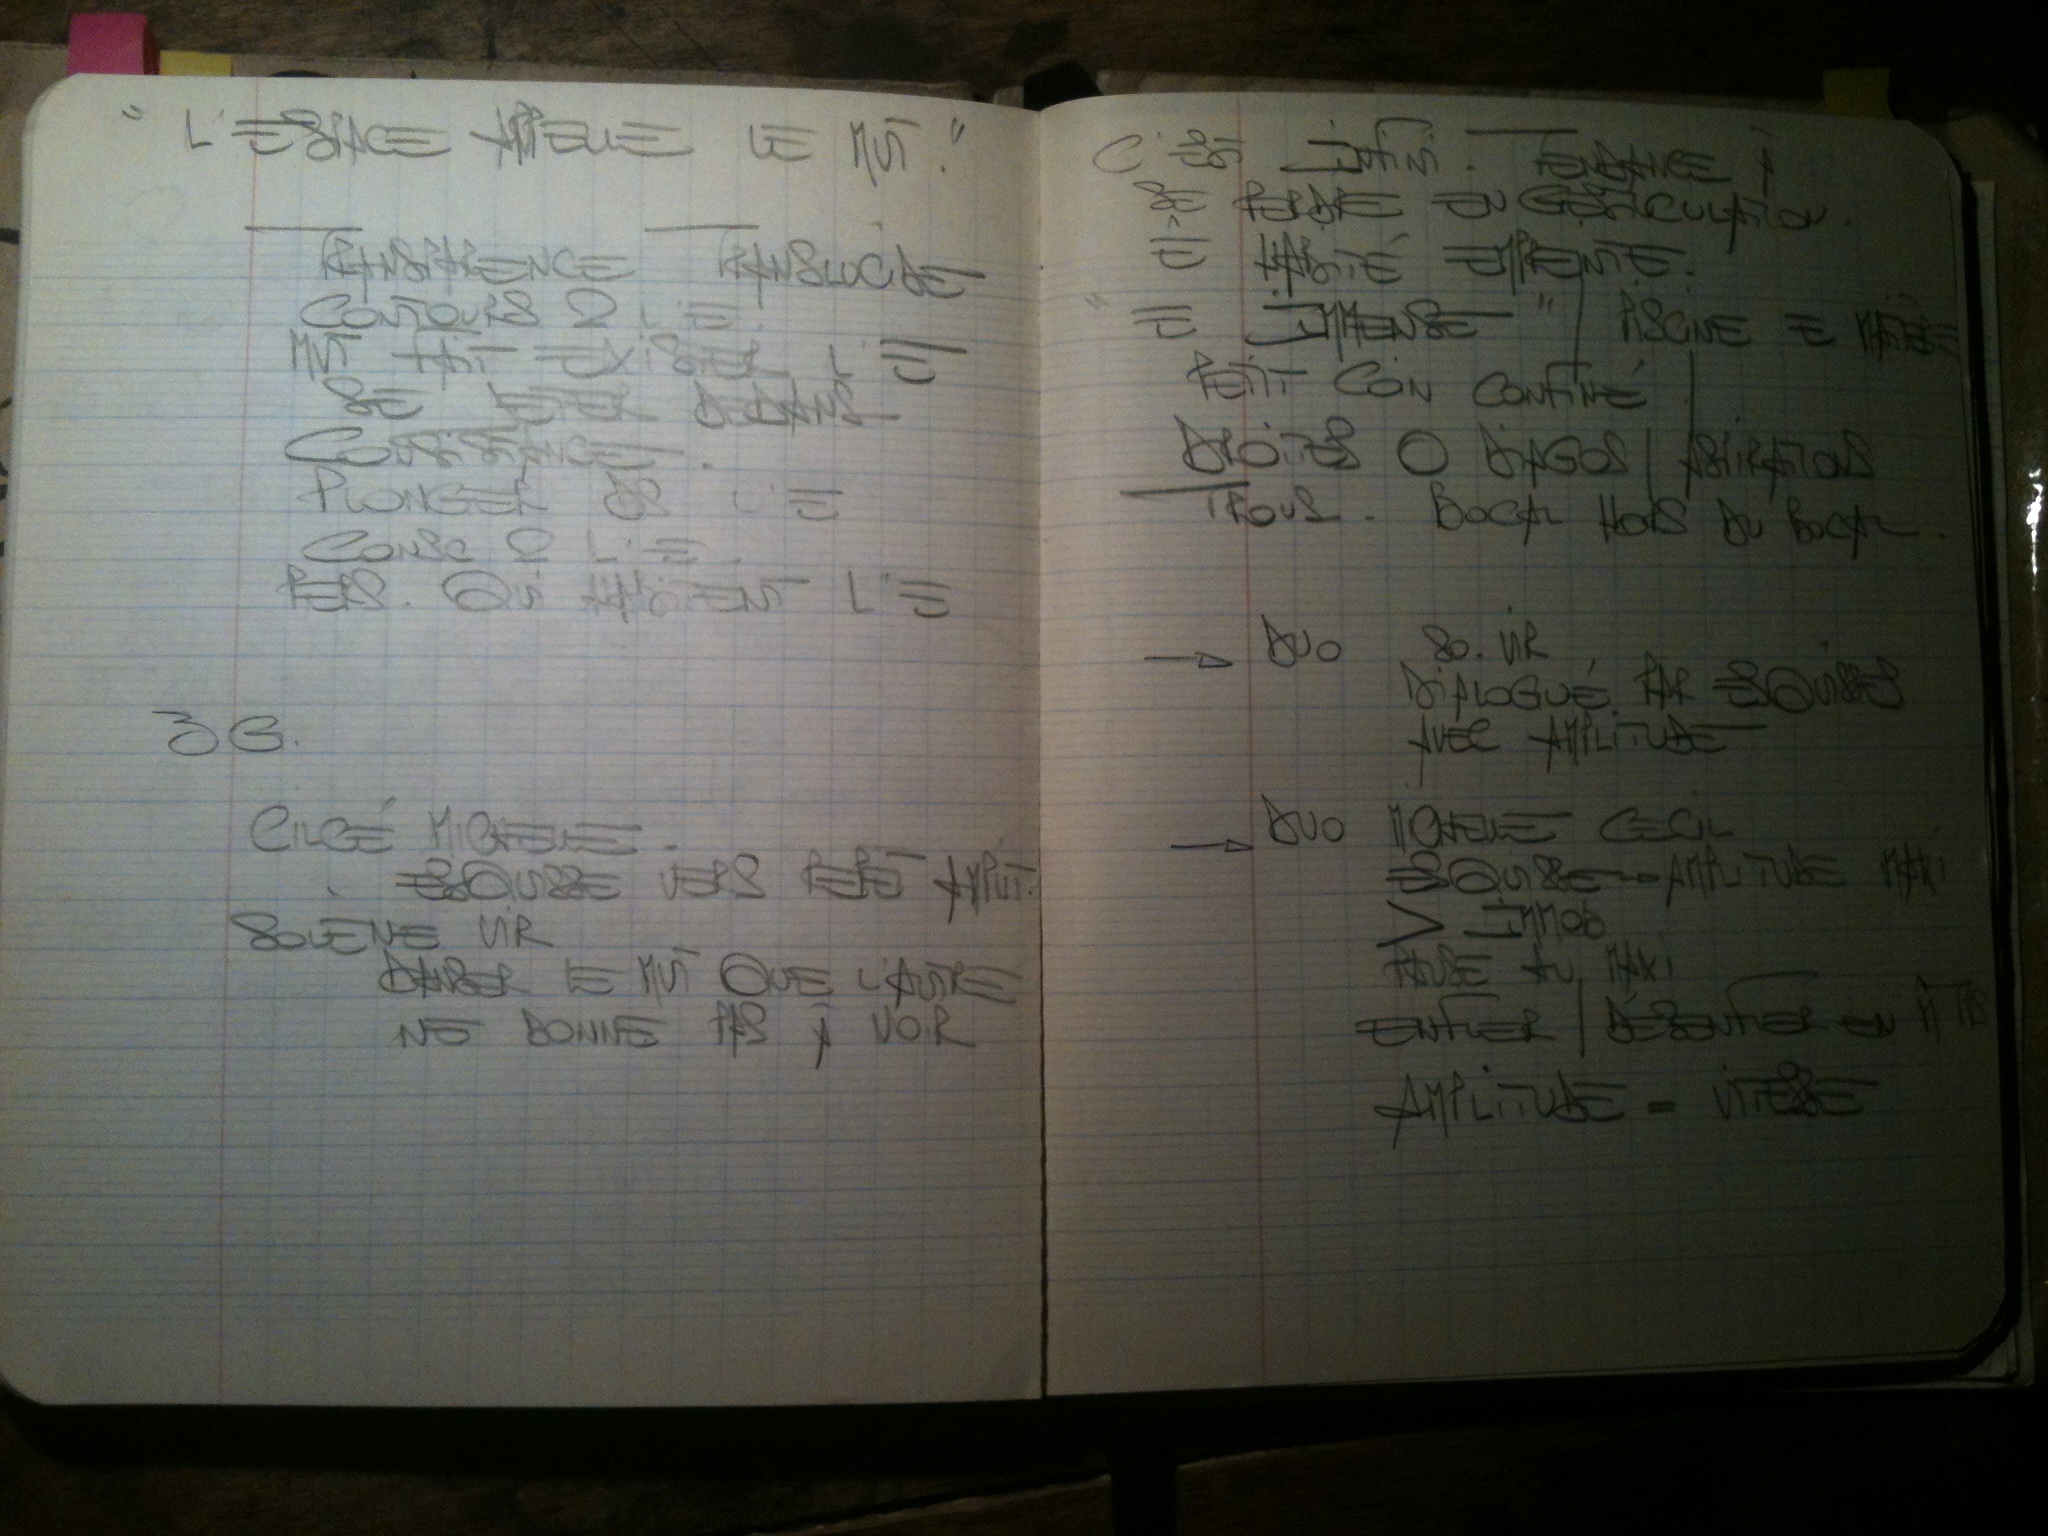 " L'ESPACE APPELLE LE MVT. "
TRANSPARENCE TRANSLUCIDE
CONTOURS 2 L'E.
MVT FAIT EXISTER L'E
SE JETER DEDANS
CONSISTANCE.
PLONGER DS L'E
CONSC 2 L'E.
PERS. QUI L'E
3 G.
MICHELLE.
ESQUISSE VERS PERTE AMPLIT.
SOLÈNE VIR
DANSER LE MVT QUE L'AUTRE
NE DONNE PAS À VOIR
C'EST INFINI. TENDANCE À
SE PERDRE EN GESTICULATION.
E HABITÉ EMPREINTE.
" E IMMENSE " | PISCINE E MATIÈRE
PETIT CON CONFINÉ |
DROITES O DIAGOS | ASPIRATIONS
TROUS. BOCAL HORS DU BOCAL.
→ DUO SO. VIR
DIALOGUÉ PAR ESQUISSES
AVEC AMPLITUDE
→ DUO MICHELLE CECIL
ESQUISSE → AMPLITUDE MAXI
> IMMOB
PAUSE AU MAXI
ENFLER | DÉSENFLER EN
AMPLITUDE = VITESSE